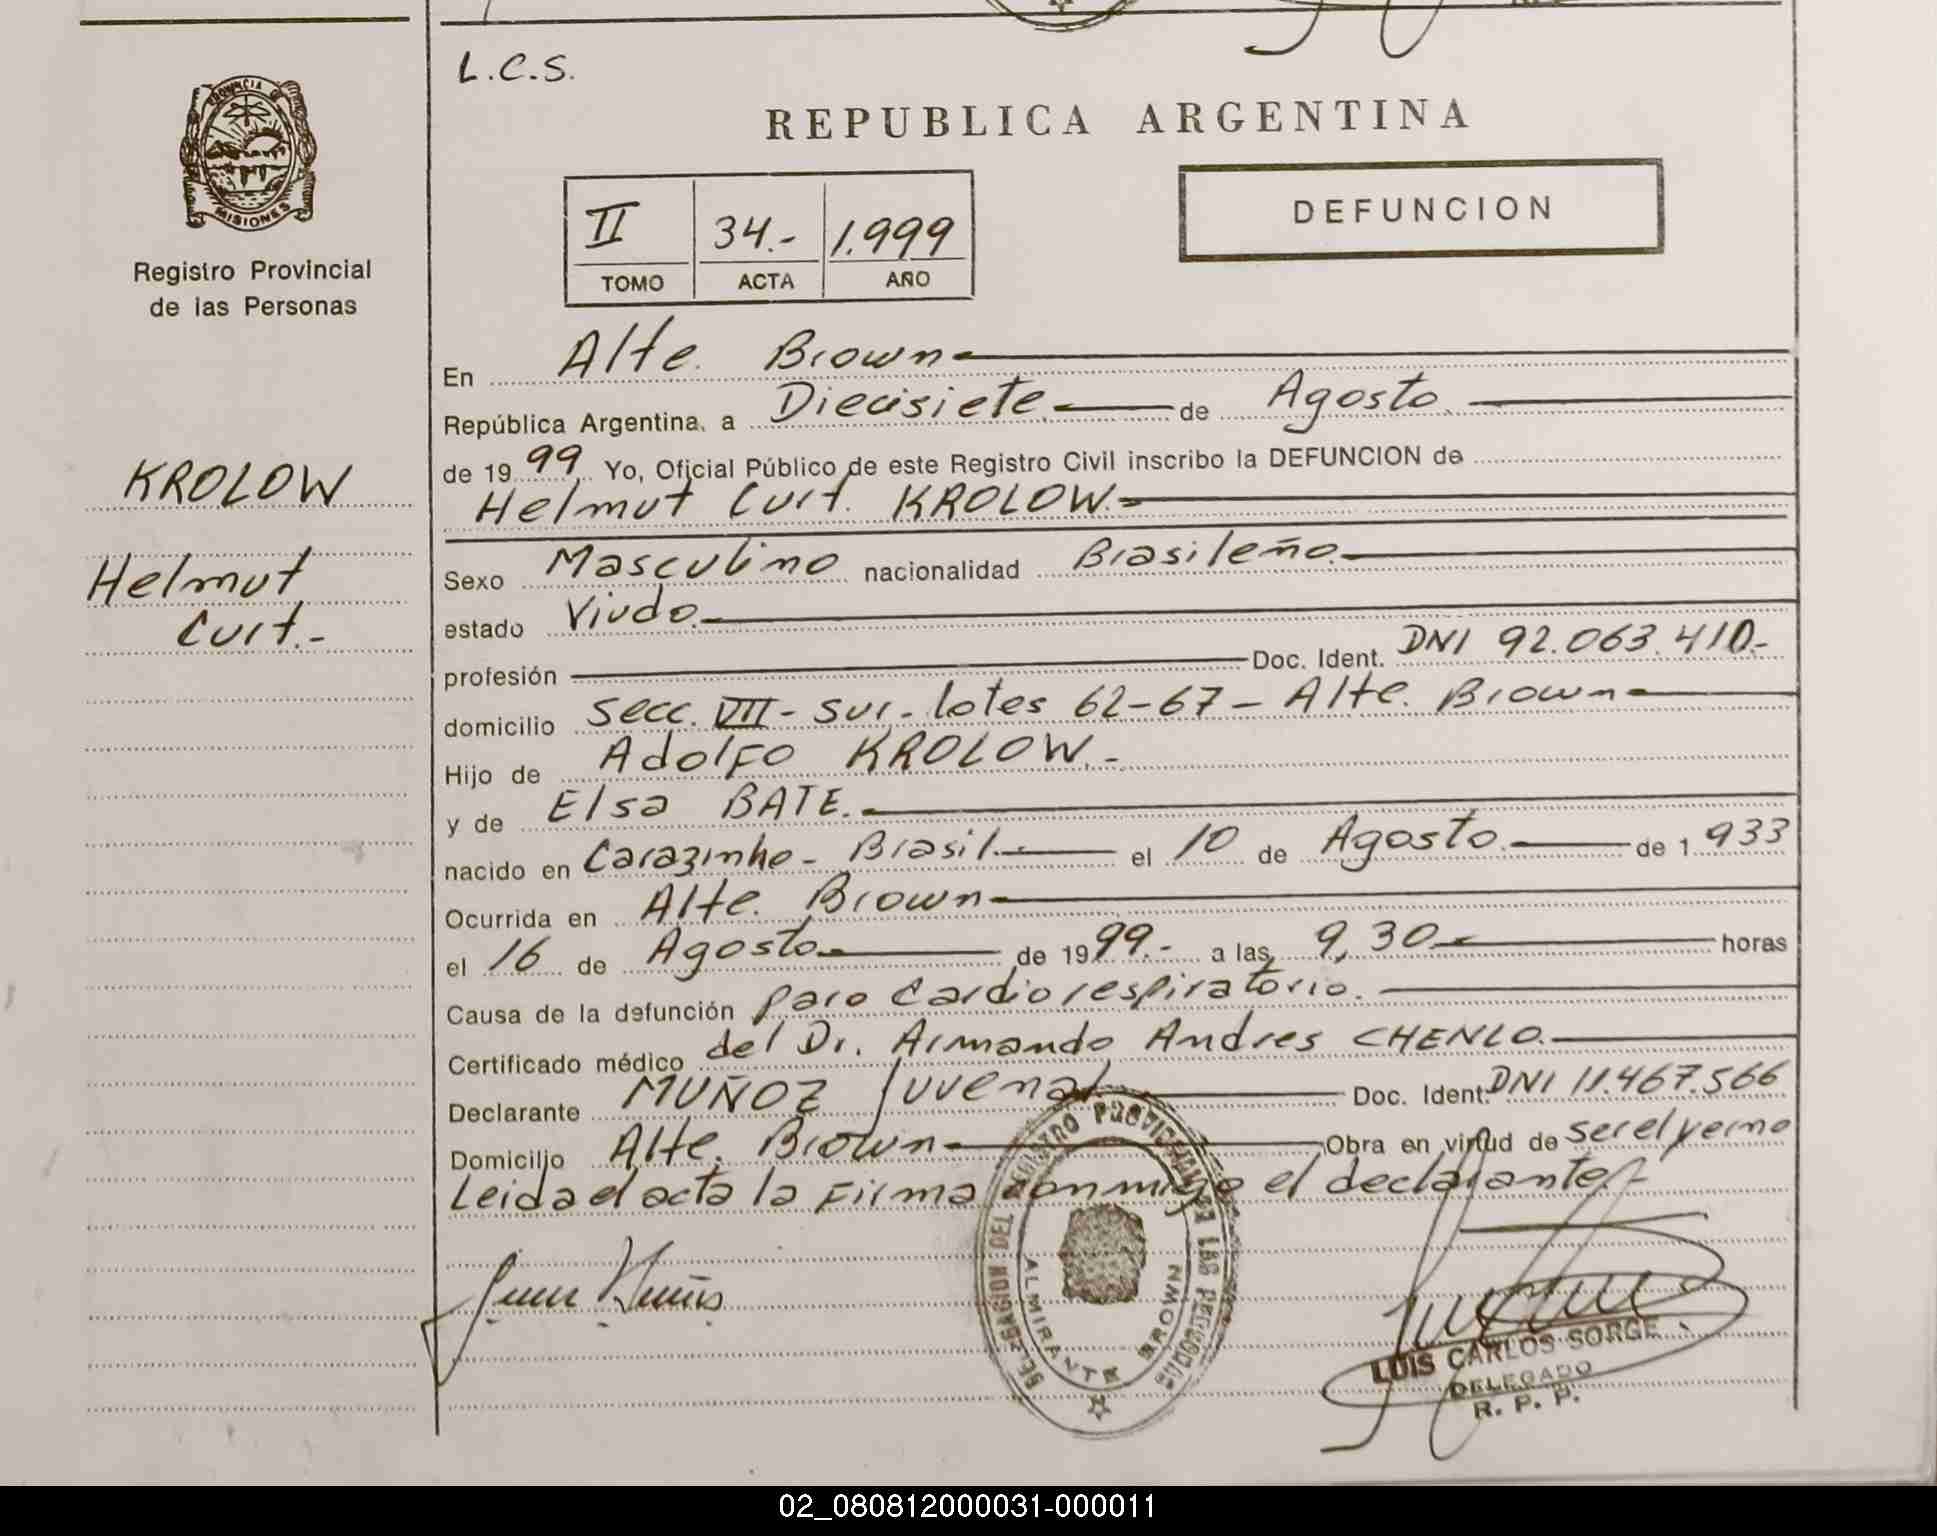 L.C.S.
REPUBLICA ARGENTINA
PROVINCIA DE
MISIONES
Registro Provincial
de las Personas
II 34.- 1.999
TOMO ACTA AÑO
DEFUNCION
En Alte. Brown
República Argentina, a Diecisiete de Agosto
de 1999 Yo, Oficial Público de este Registro Civil inscribo la DEFUNCION de
Helmut Curt. KROLOW.
KROLOW
Helmut
Curt.-
Sexo Masculino nacionalidad Brasileño.
estado Viudo.
profesión Doc. Ident. DNI 92.063.410.-
domicilio Secc. VII - sur - lotes 62-67 - Alte. Brown
Hijo de Adolfo KROLOW.-
y de Elsa BATE.
nacido en Carazinho - Brasil. el 10 de Agosto de 1.933
Ocurrida en Alte. Brown
el 16 de Agosto de 1999.- a las 9,30 horas
Causa de la defunción paro Cardiorespiratorio.
Certificado médico del Dr. Armando Andres CHENLO.
Declarante MUÑOZ Juvenal Doc. Ident. DNI 11.467.566
Domicilio Alte. Brown Obra en virtud de ser el yerno
Leida el acta la Firma conmigo el declarante.-
DELEGACION DEL REGISTRO PROVINCIAL DE LAS PERSONAS
ALMIRANTE BROWN
LUIS CARLOS SORGE
DELEGADO
R. P. P.
02_080812000031-000011